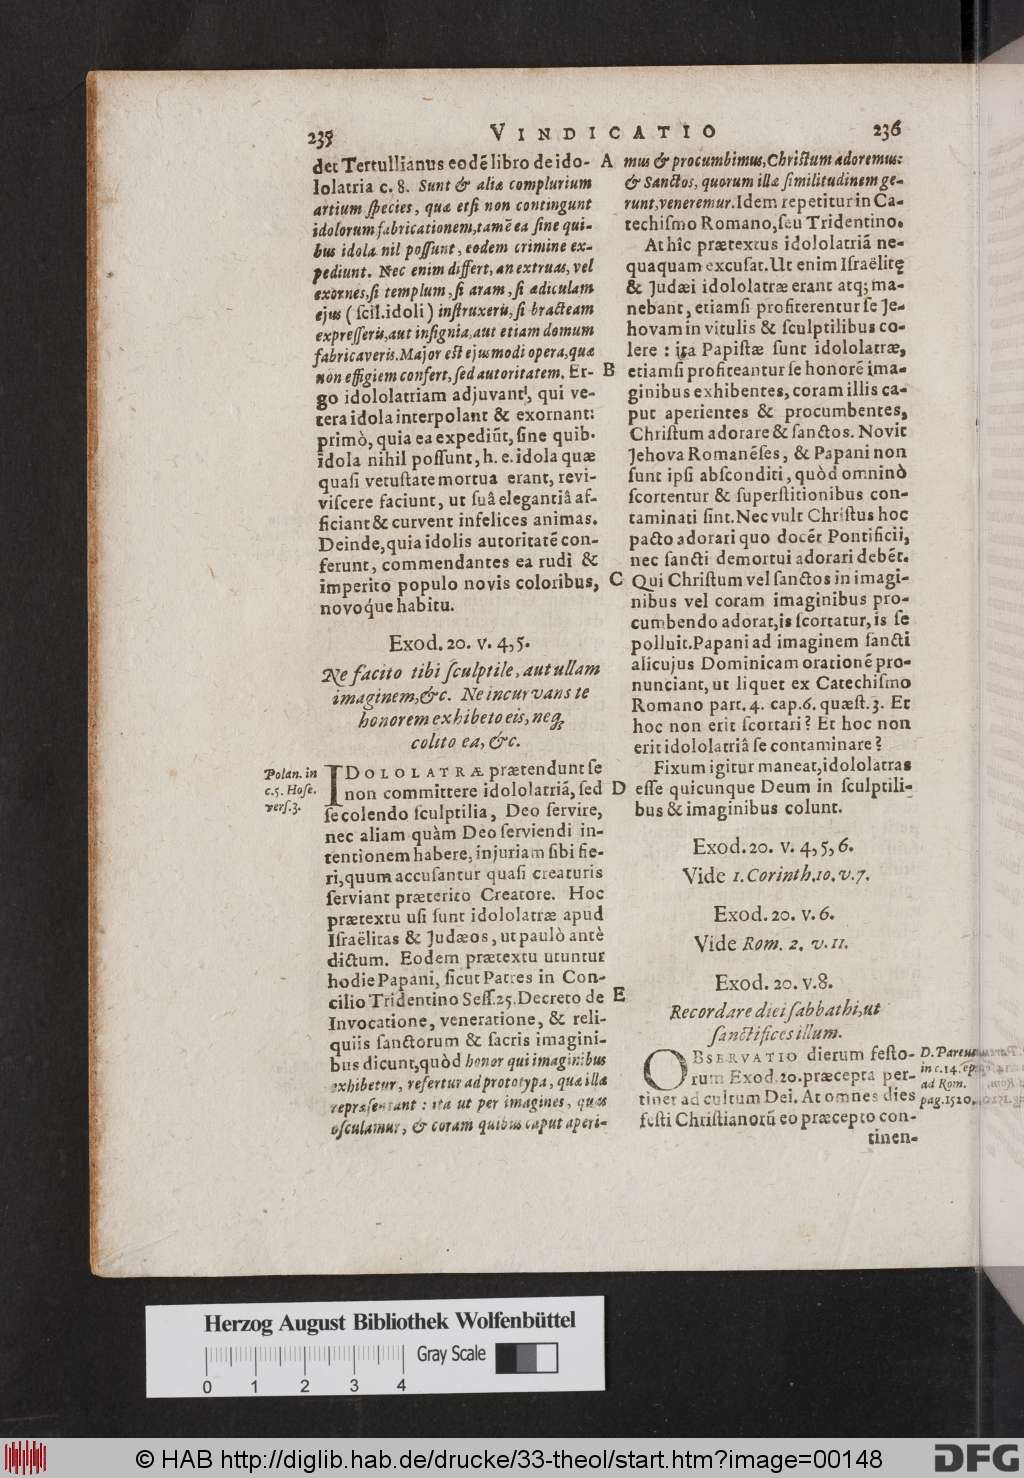 235
VINDICATIO
236
det Tertullianus eodē libro de ido-
lolatria c. 8. Sunt & aliæ complurium
artium ſpecies, quæ etſi non contingunt
idolorum fabricationem, tamē ea ſine qui-
bus idola nil poſſunt, eodem crimine ex-
pediunt. Nec enim differt, an extruas, vel
exornes, ſi templum, ſi aram, ſi ædiculam
ejus (ſcil. idoli) inſtruxeris, ſi bracteam
expreſſeris, aut inſignia, aut etiam domum
fabricaveris. Major eſt ejusmodi opera, quæ
non effigiem confert, ſed autoritatem. Er-
go idololatriam adjuvant, qui ve-
tera idola interpolant & exornant:
primò, quia ea expediūt, ſine quib.
idola nihil poſſunt, h. e. idola quæ
quaſi vetuſtate mortua erant, revi-
viſcere faciunt, ut ſuâ elegantiâ af-
ficiant & curvent infelices animas.
Deinde, quia idolis autoritatē con-
ferunt, commendantes ea rudi &
imperito populo novis coloribus,
novoq́ue habitu.
Exod. 20. v. 4, 5.
Ne facito tibi ſculptile, aut ullam
imaginem, &c. Ne incurvans te
honorem exhibeto eis, neq́;
colito ea, &c.
Polan. in
c. 5. Hoſe.
verſ. 3.
IDOLOLATRÆ prætendunt ſe
non committere idololatriā, ſed
ſe colendo ſculptilia, Deo ſervire,
nec aliam quàm Deo ſerviendi in-
tentionem habere, injuriam ſibi fie-
ri, quum accuſantur quaſi creaturis
ſerviant præterito Creatore. Hoc
prætextu uſi ſunt idololatræ apud
Iſraëlitas & Judæos, ut paulò antè
dictum. Eodem prætextu utuntur
hodie Papani, ſicut Patres in Con-
cilio Tridentino Seſſ. 25. Decreto de
Invocatione, veneratione, & reli-
quiis ſanctorum & ſacris imagini-
bus dicunt, quòd honor qui imaginibus
exhibetur, refertur ad prototypa, quæ illæ
repræſentant: ita ut per imagines, quas
oſculamur, & coram quibus caput aperi-
A
B
C
D
E
mus & procumbimus, Chriſtum adoremus:
& Sanctos, quorum illæ ſimilitudinem ge-
runt, veneremur. Idem repetitur in Ca-
techiſmo Romano, ſeu Tridentino.
At hîc prætextus idololatriā ne-
quaquam excuſat. Ut enim Iſraëlitę
& Judæi idololatræ erant atq; ma-
nebant, etiamſi profiterentur ſe Je-
hovam in vitulis & ſculptilibus co-
lere: ita Papiſtæ ſunt idololatræ,
etiamſi profiteantur ſe honorē ima-
ginibus exhibentes, coram illis ca-
put aperientes & procumbentes,
Chriſtum adorare & ſanctos. Novit
Jehova Romanēſes, & Papani non
ſunt ipſi abſconditi, quòd omninò
ſcortentur & ſuperſtitionibus con-
taminati ſint. Nec vult Chriſtus hoc
pacto adorari quo docēt Pontificii,
nec ſancti demortui adorari debēt.
Qui Chriſtum vel ſanctos in imagi-
nibus vel coram imaginibus pro-
cumbendo adorat, is ſcortatur, is ſe
polluit. Papani ad imaginem ſancti
alicujus Dominicam orationē pro-
nunciant, ut liquet ex Catechiſmo
Romano part. 4. cap. 6. quæſt. 3. Et
hoc non erit ſcortari? Et hoc non
erit idololatriâ ſe contaminare?
Fixum igitur maneat, idololatras
eſſe quicunque Deum in ſculptili-
bus & imaginibus colunt.
Exod. 20. v. 4, 5, 6.
Vide 1. Corinth. 10. v. 7.
Exod. 20. v. 6.
Vide Rom. 2. v. 11.
Exod. 20. v. 8.
Recordare diei ſabbathi, ut
ſanctifices illum.
OBSERVATIO dierum feſto-
rum Exod. 20. præcepta per-
tinet ad cultum Dei. At omnes dies
feſti Chriſtianorū eo præcepto con-
tinen-
D. Pareus
in c. 14. ep.
ad Rom.
pag. 1520.
Herzog August Bibliothek Wolfenbüttel
Gray Scale
0 1 2 3 4
© HAB http://diglib.hab.de/drucke/33-theol/start.htm?image=00148
DFG